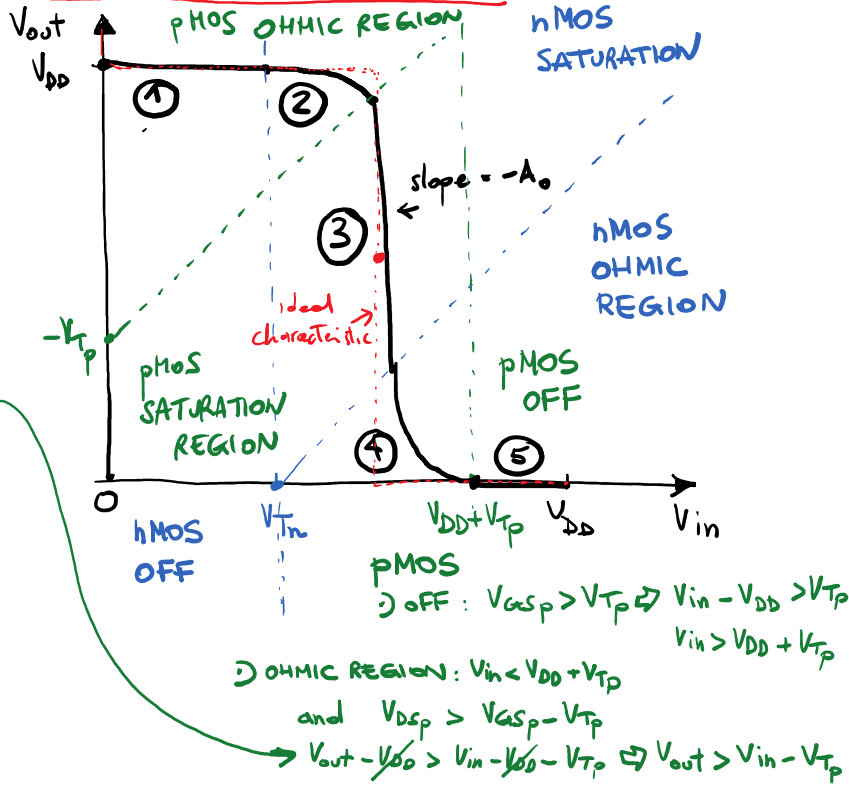 Vout
pMOS OHMIC REGION
nMOS
SATURATION
VDD
1
2
slope = -A0
3
nMOS
OHMIC
REGION
ideal
characteristic
-VTp
pMOS
SATURATION
REGION
pMOS
OFF
4
5
0
VTn
VDD+VTp
VDD
Vin
nMOS
OFF
pMOS
:) OFF : VGSp > VTp ⇨ Vin - VDD > VTp
Vin > VDD + VTp
:) OHMIC REGION : Vin < VDD + VTp
and VDSp > VGSp - VTp
Vout - VDD > Vin - VDD - VTp ⇨ Vout > Vin - VTp